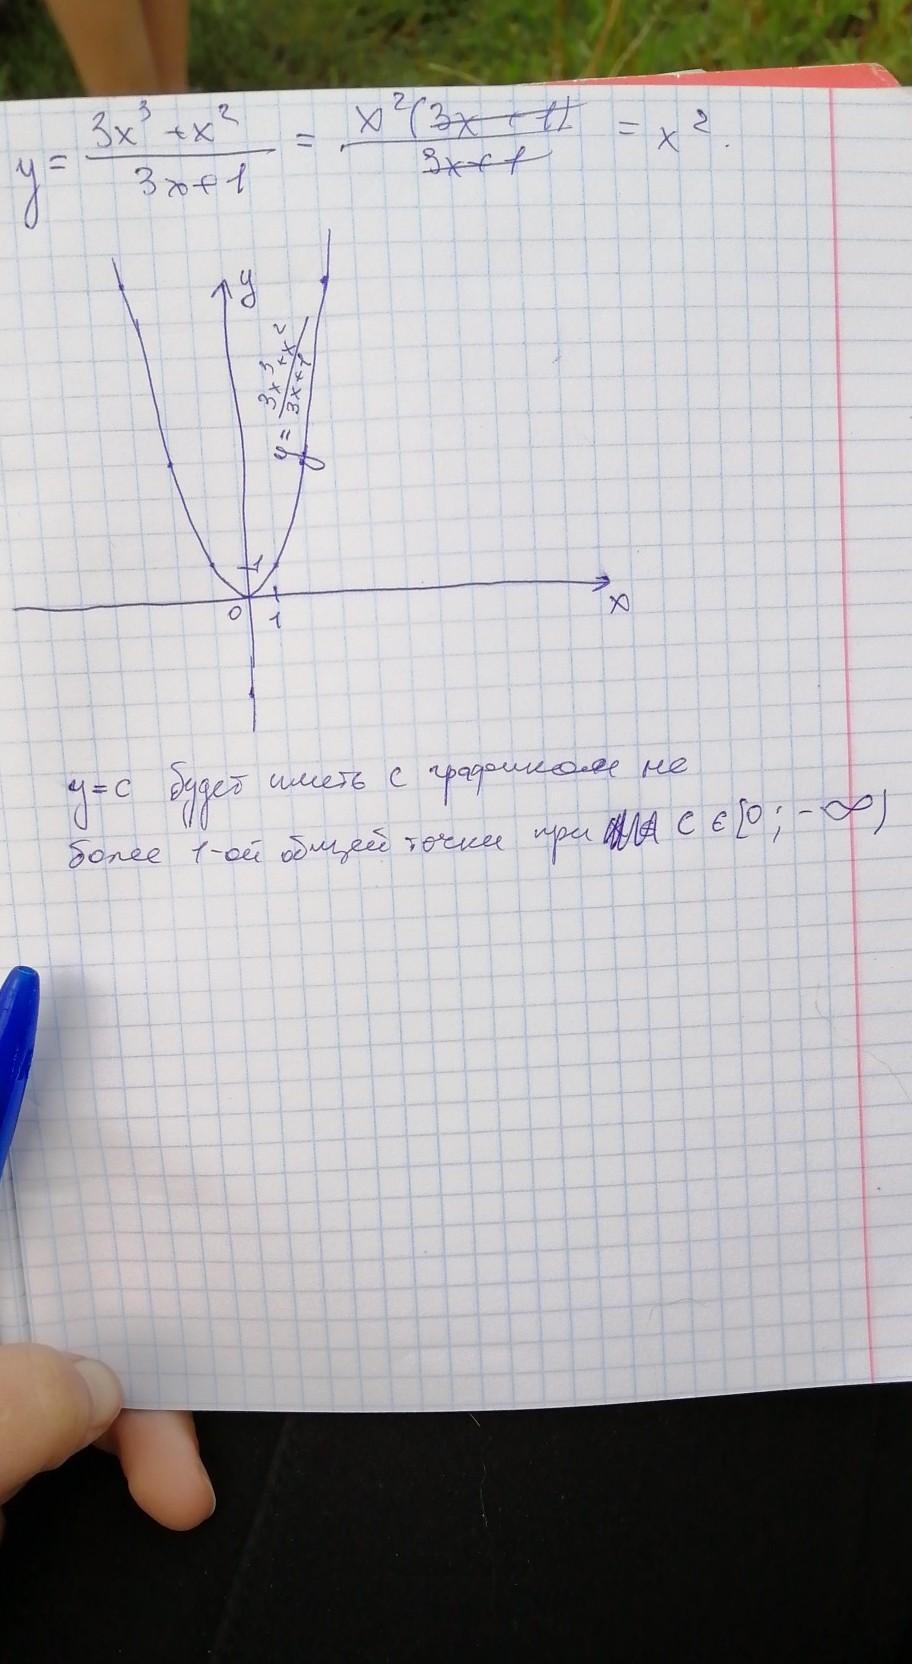 y = (3x³ + x²)/(3x+1) = x²(3x+1)/(3x+1) = x².
y
y = (3x³+x²)/(3x+1)
1
0
1
x
y=c будет иметь с графиком не
более 1-ой общей точки при c ∈ [0; -∞)